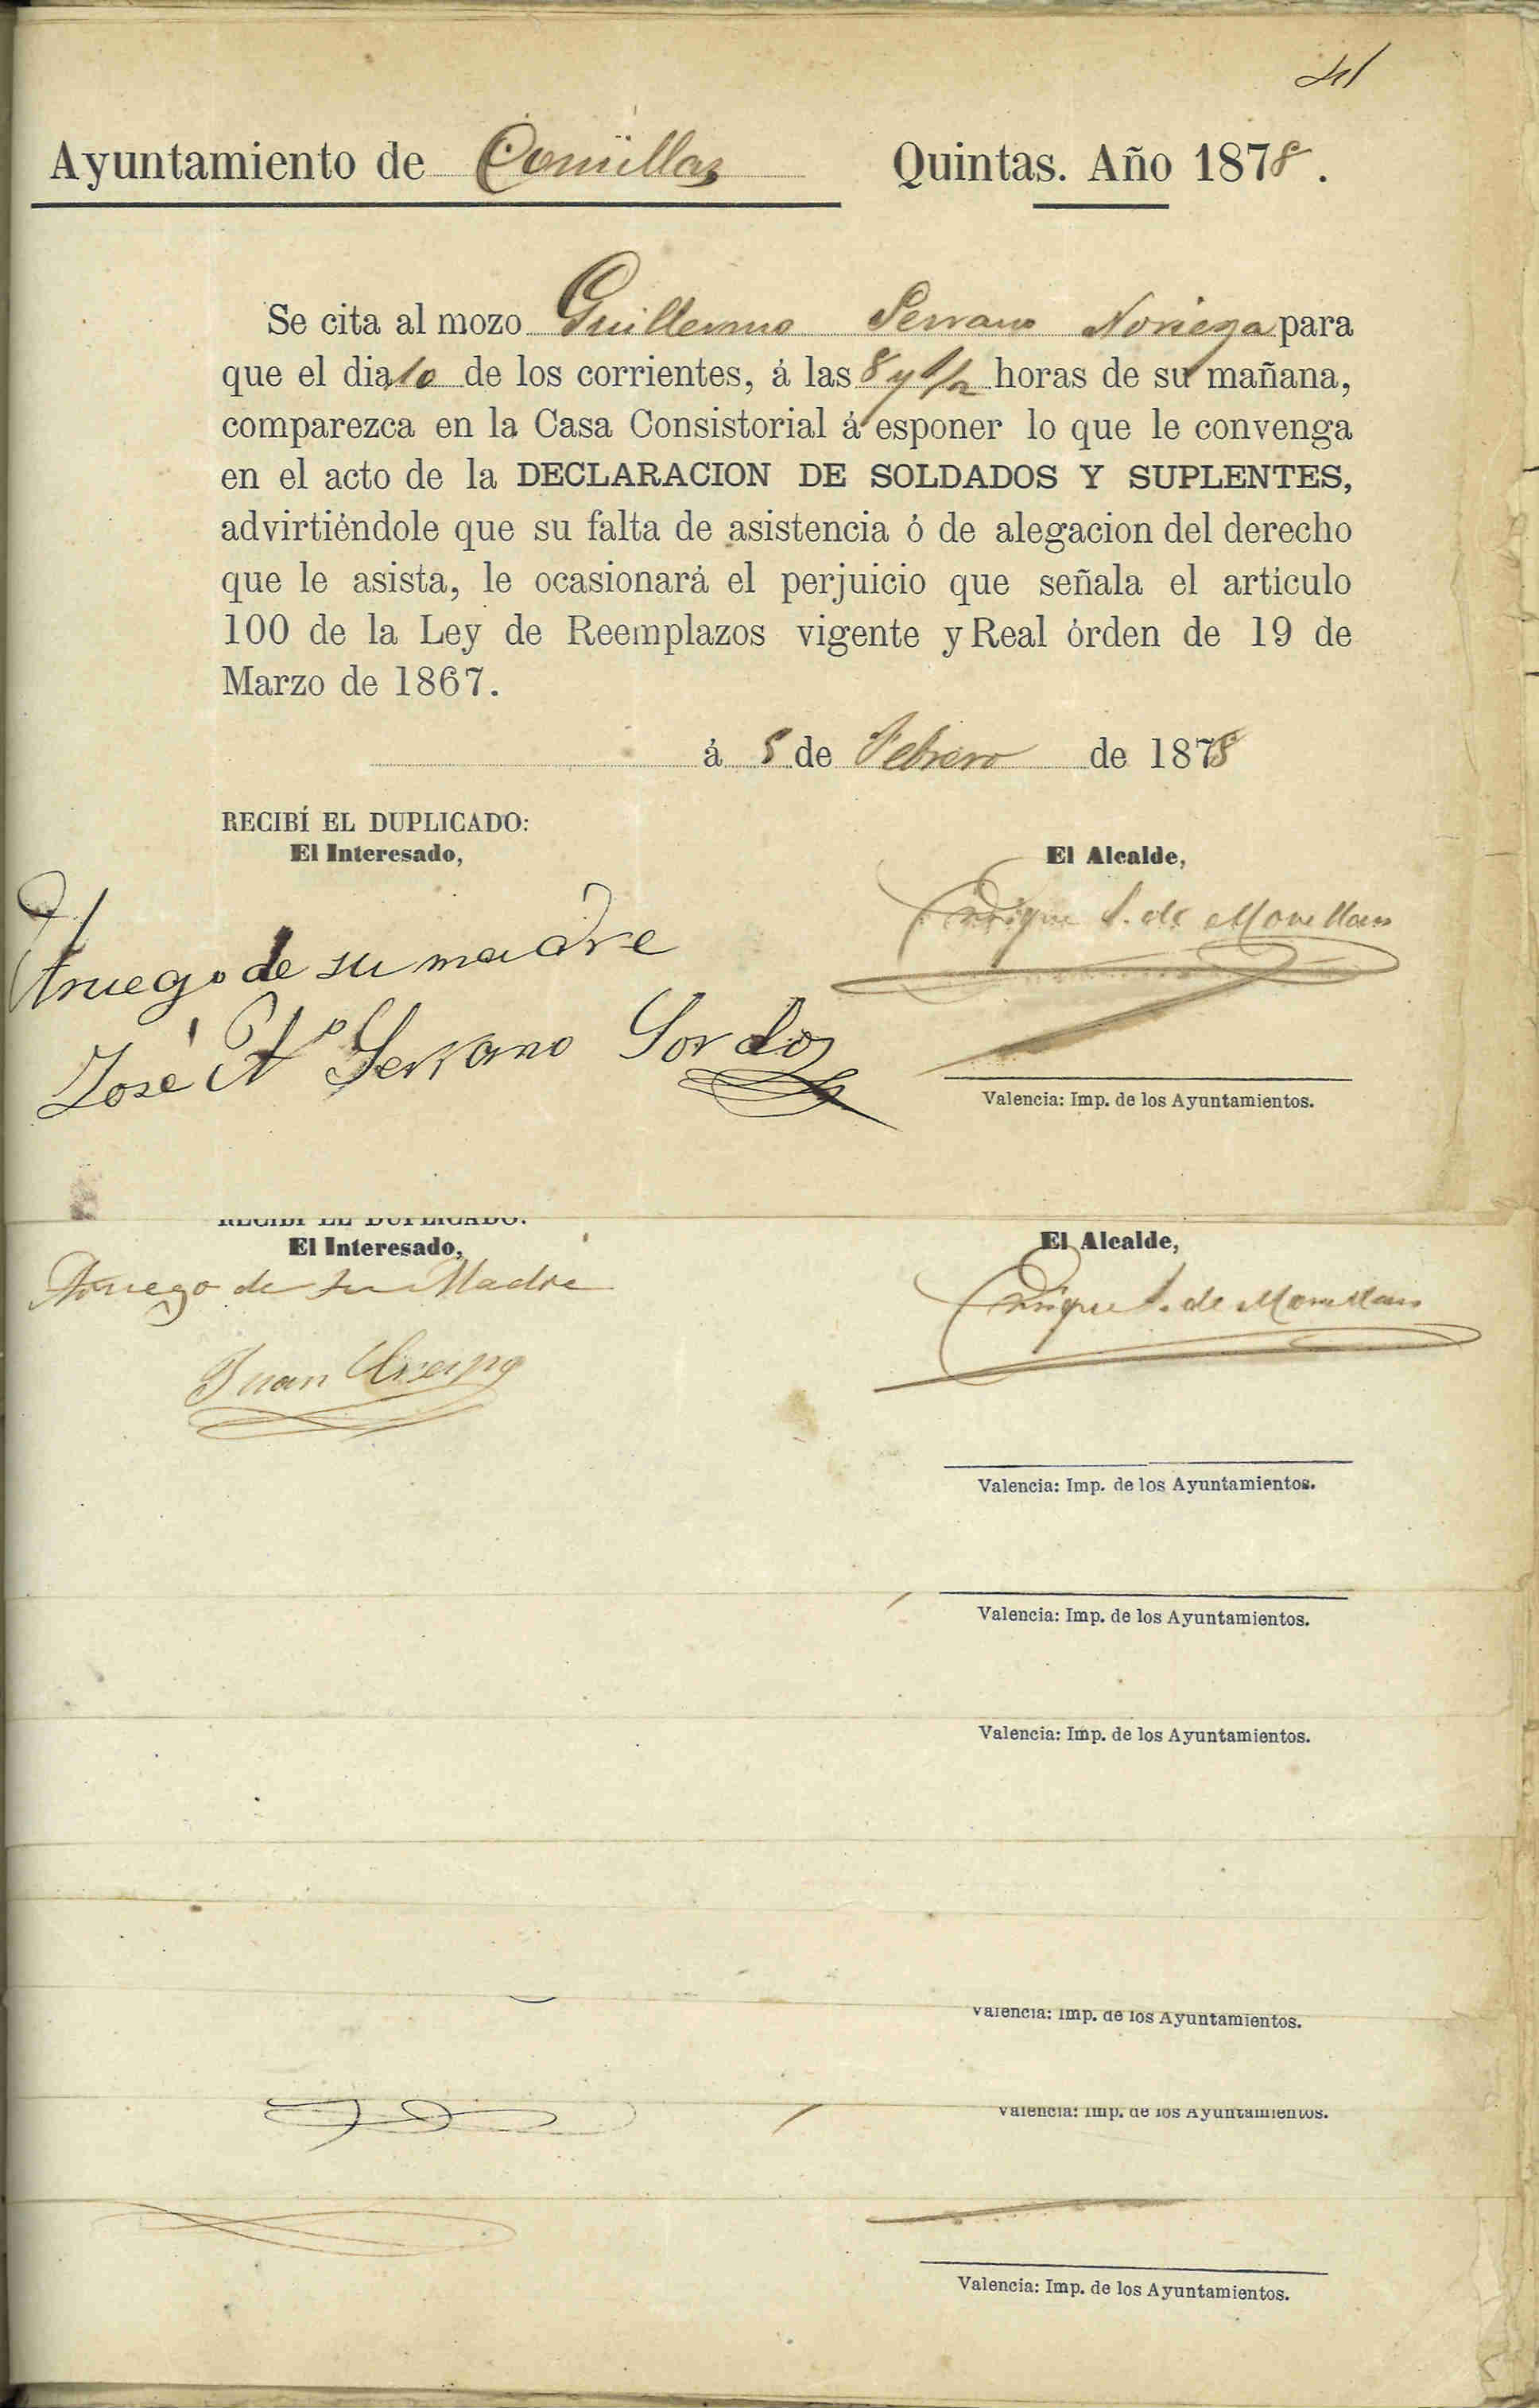 41
Ayuntamiento de Comillas Quintas. Año 1878.
Se cita al mozo Guillermo Serrano Noriega para
que el dia 10 de los corrientes, á las 8 y 1/2 horas de su mañana,
comparezca en la Casa Consistorial á esponer lo que le convenga
en el acto de la DECLARACION DE SOLDADOS Y SUPLENTES,
advirtiéndole que su falta de asistencia ó de alegacion del derecho
que le asista, le ocasionará el perjuicio que señala el artículo
100 de la Ley de Reemplazos vigente y Real órden de 19 de
Marzo de 1867.
á 8 de Febrero de 1878
RECIBÍ EL DUPLICADO:
El Interesado,
El Alcalde,
Enrique S. de Movellan
Aruego de su madre
José Aº Serrano Sordo
Valencia: Imp. de los Ayuntamientos.
RECIBÍ EL DUPLICADO:
El Interesado,
El Alcalde,
Aruego de su Madre
Enrique S. de Movellan
Juan
Valencia: Imp. de los Ayuntamientos.
Valencia: Imp. de los Ayuntamientos.
Valencia: Imp. de los Ayuntamientos.
Valencia: Imp. de los Ayuntamientos.
Valencia: Imp. de los Ayuntamientos.
Valencia: Imp. de los Ayuntamientos.